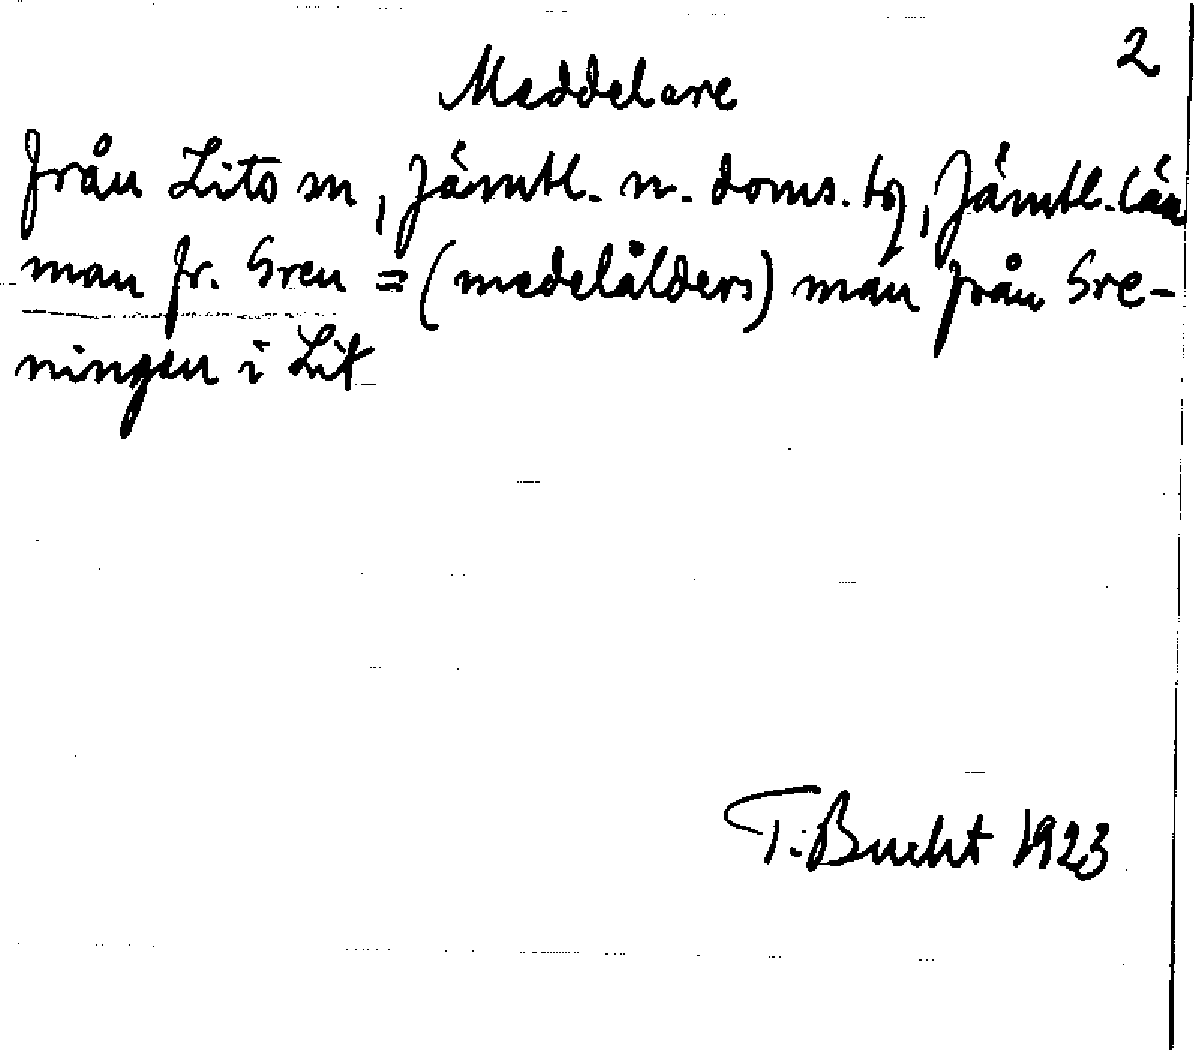 2
Meddelare
från Lits sn, Jämtl. n. doms. tg, Jämtl. län
man fr. Gren = (medelålders) man från Gre-
ningen i Lit
T. Bucht 1923